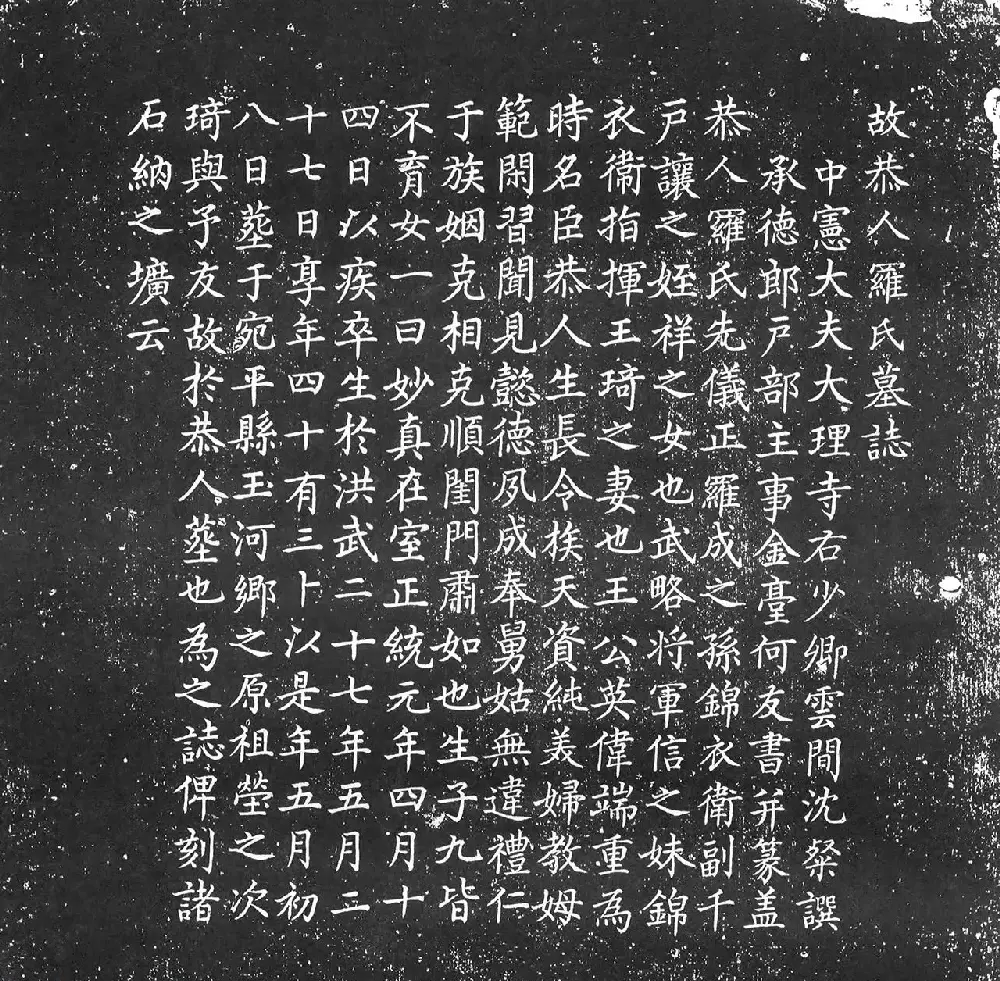 故恭人羅氏墓誌
中憲大夫大理寺右少卿雲間沈粲譔
承德郎戶部主事金臺何友書并篆盖
恭人羅氏先儀正羅成之孫錦衣衛副千
戶讓之姪祥之女也武略將軍信之妹錦
衣衛指揮王琦之妻也王公英偉端重為
時名臣恭人生長令族天資純美婦教姆
範閑習聞見懿德夙成奉舅姑無違禮仁
于族姻克相克順閨門肅如也生子九皆
不育女一曰妙真在室正統元年四月十
四日以疾卒生於洪武二十七年五月二
十七日享年四十有三卜以是年五月初
八日塟于宛平縣玉河鄉之原祖塋之次
琦與予友故於恭人塟也為之誌俾刻諸
石納之壙云